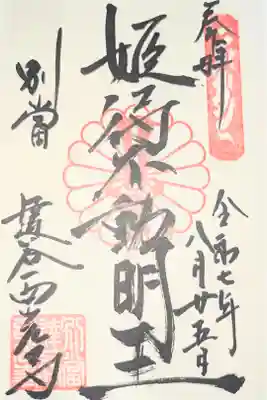 奉拝
令和七年
八月廿五日
姫待不動明王
別當
達谷西光寺